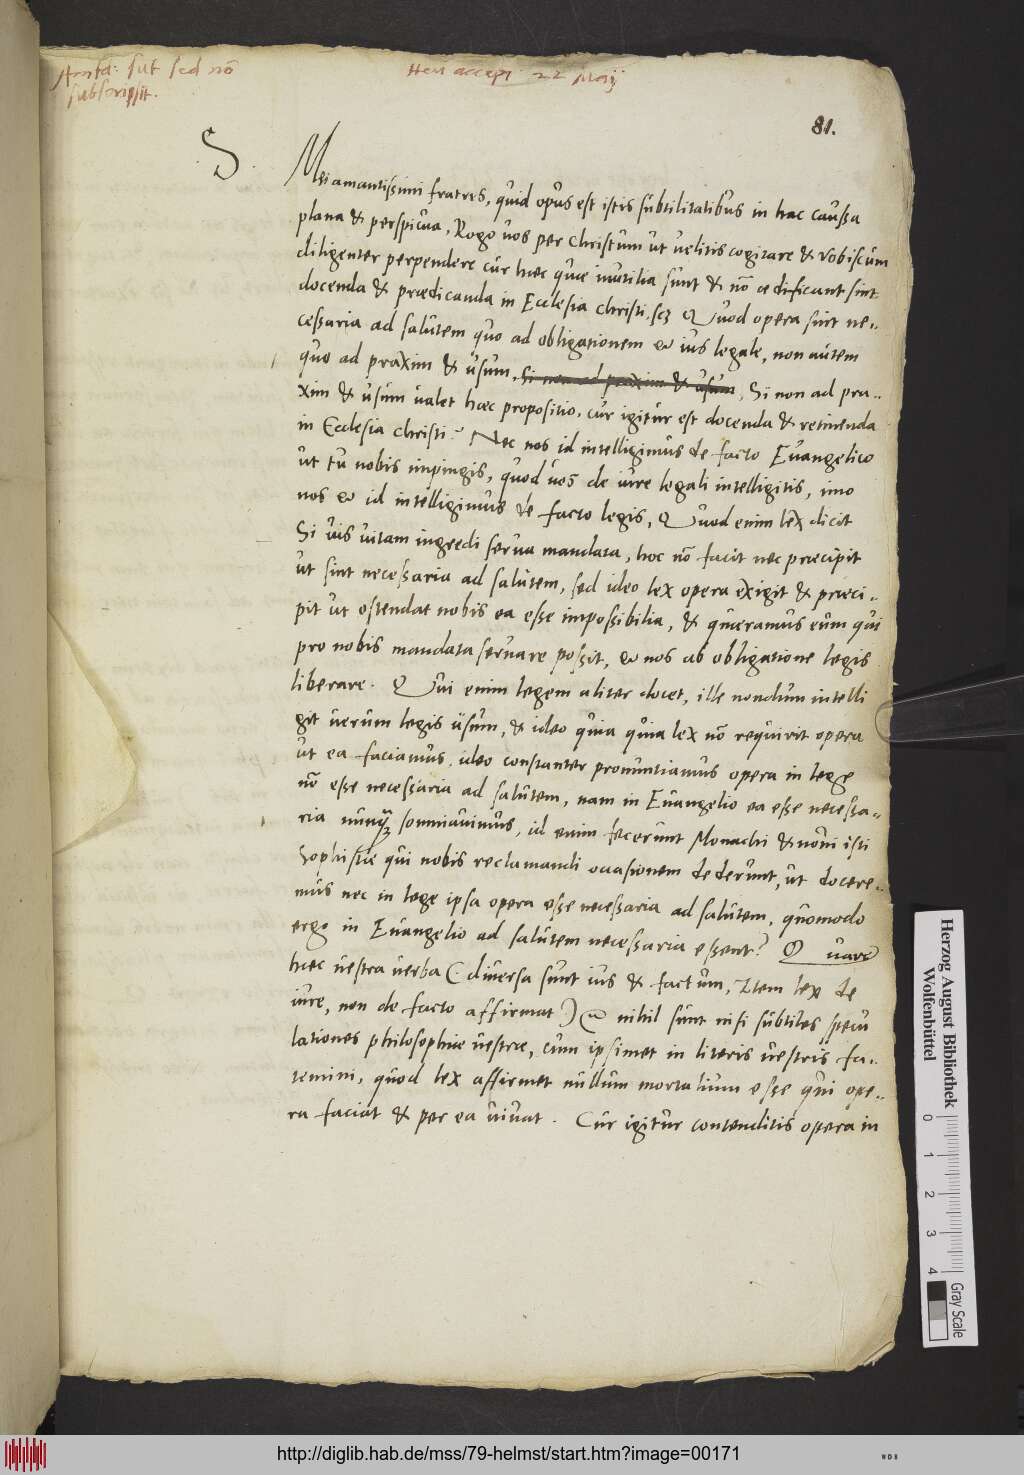 Amsd: sūt sed nō
subscripsit.
Heri accepi 22 Maij
81.
S.
Mei amantissimi fratres, quid opus est istis subtilitatibus in hac caussa
plana & perspicua, Rogo vos per Christum ut velitis cogitare & vobiscum
diligenter perpendere cur hæc quæ inutilia sunt & nō ædificant sint
docenda & prædicanda in Ecclesia Christi, scz Quod opera sint ne-
cessaria ad salutem quo ad obligationem et ius legale, non autem
quo ad praxim & usum, si non ad praxim & usum, Si non ad pra-
xim & usum valet hæc propositio, cur igitur est docenda & retinenda
in Ecclesia Christi? Nec nos id intelligimus de facto Evangelico
ut tu nobis impingis, quod vos de iure legali intelligitis, imo
nos et id intelligimus de facto legis, Quod enim lex dicit
Si vis vitam ingredi serva mandata, hoc nō facit nec præcipit
ut sint necessaria ad salutem, sed ideo lex opera exigit & præci-
pit ut ostendat nobis ea esse impossibilia, & quæramus eum qui
pro nobis mandata servare possit, et nos ab obligatione legis
liberare. Qui enim legem aliter docet, ille nondum intelli
git verum legis usum, & ideo quia quia lex nō requirit opera
ut ea faciamus, ideo constanter pronuntiamus opera in lege
nō esse necessaria ad salutem, nam in Evangelio ea esse necessa-
ria nunqz somniavimus, id enim fecerunt Monachi & novi isti
Sophistæ qui nobis reclamandi occasionem dederunt, ut docere-
mus nec in lege ipsa opera esse necessaria ad salutem, quomodo
ergo in Evangelio ad salutem necessaria essent? Quare
hæc vestra verba (diversa sunt ius & factum, Item lex de
iure, non de facto affirmat) nihil sunt nisi subtiles specu
lationes philosophiæ vestræ, cum ipsimet in literis vestris fa-
temini, quod lex affirmet nullum mortalium esse qui ope-
ra faciat & per ea vivat. Cur igitur contenditis opera in
Herzog August Bibliothek
Wolfenbüttel
0 1 2 3 4
Gray Scale
http://diglib.hab.de/mss/79-helmst/start.htm?image=00171